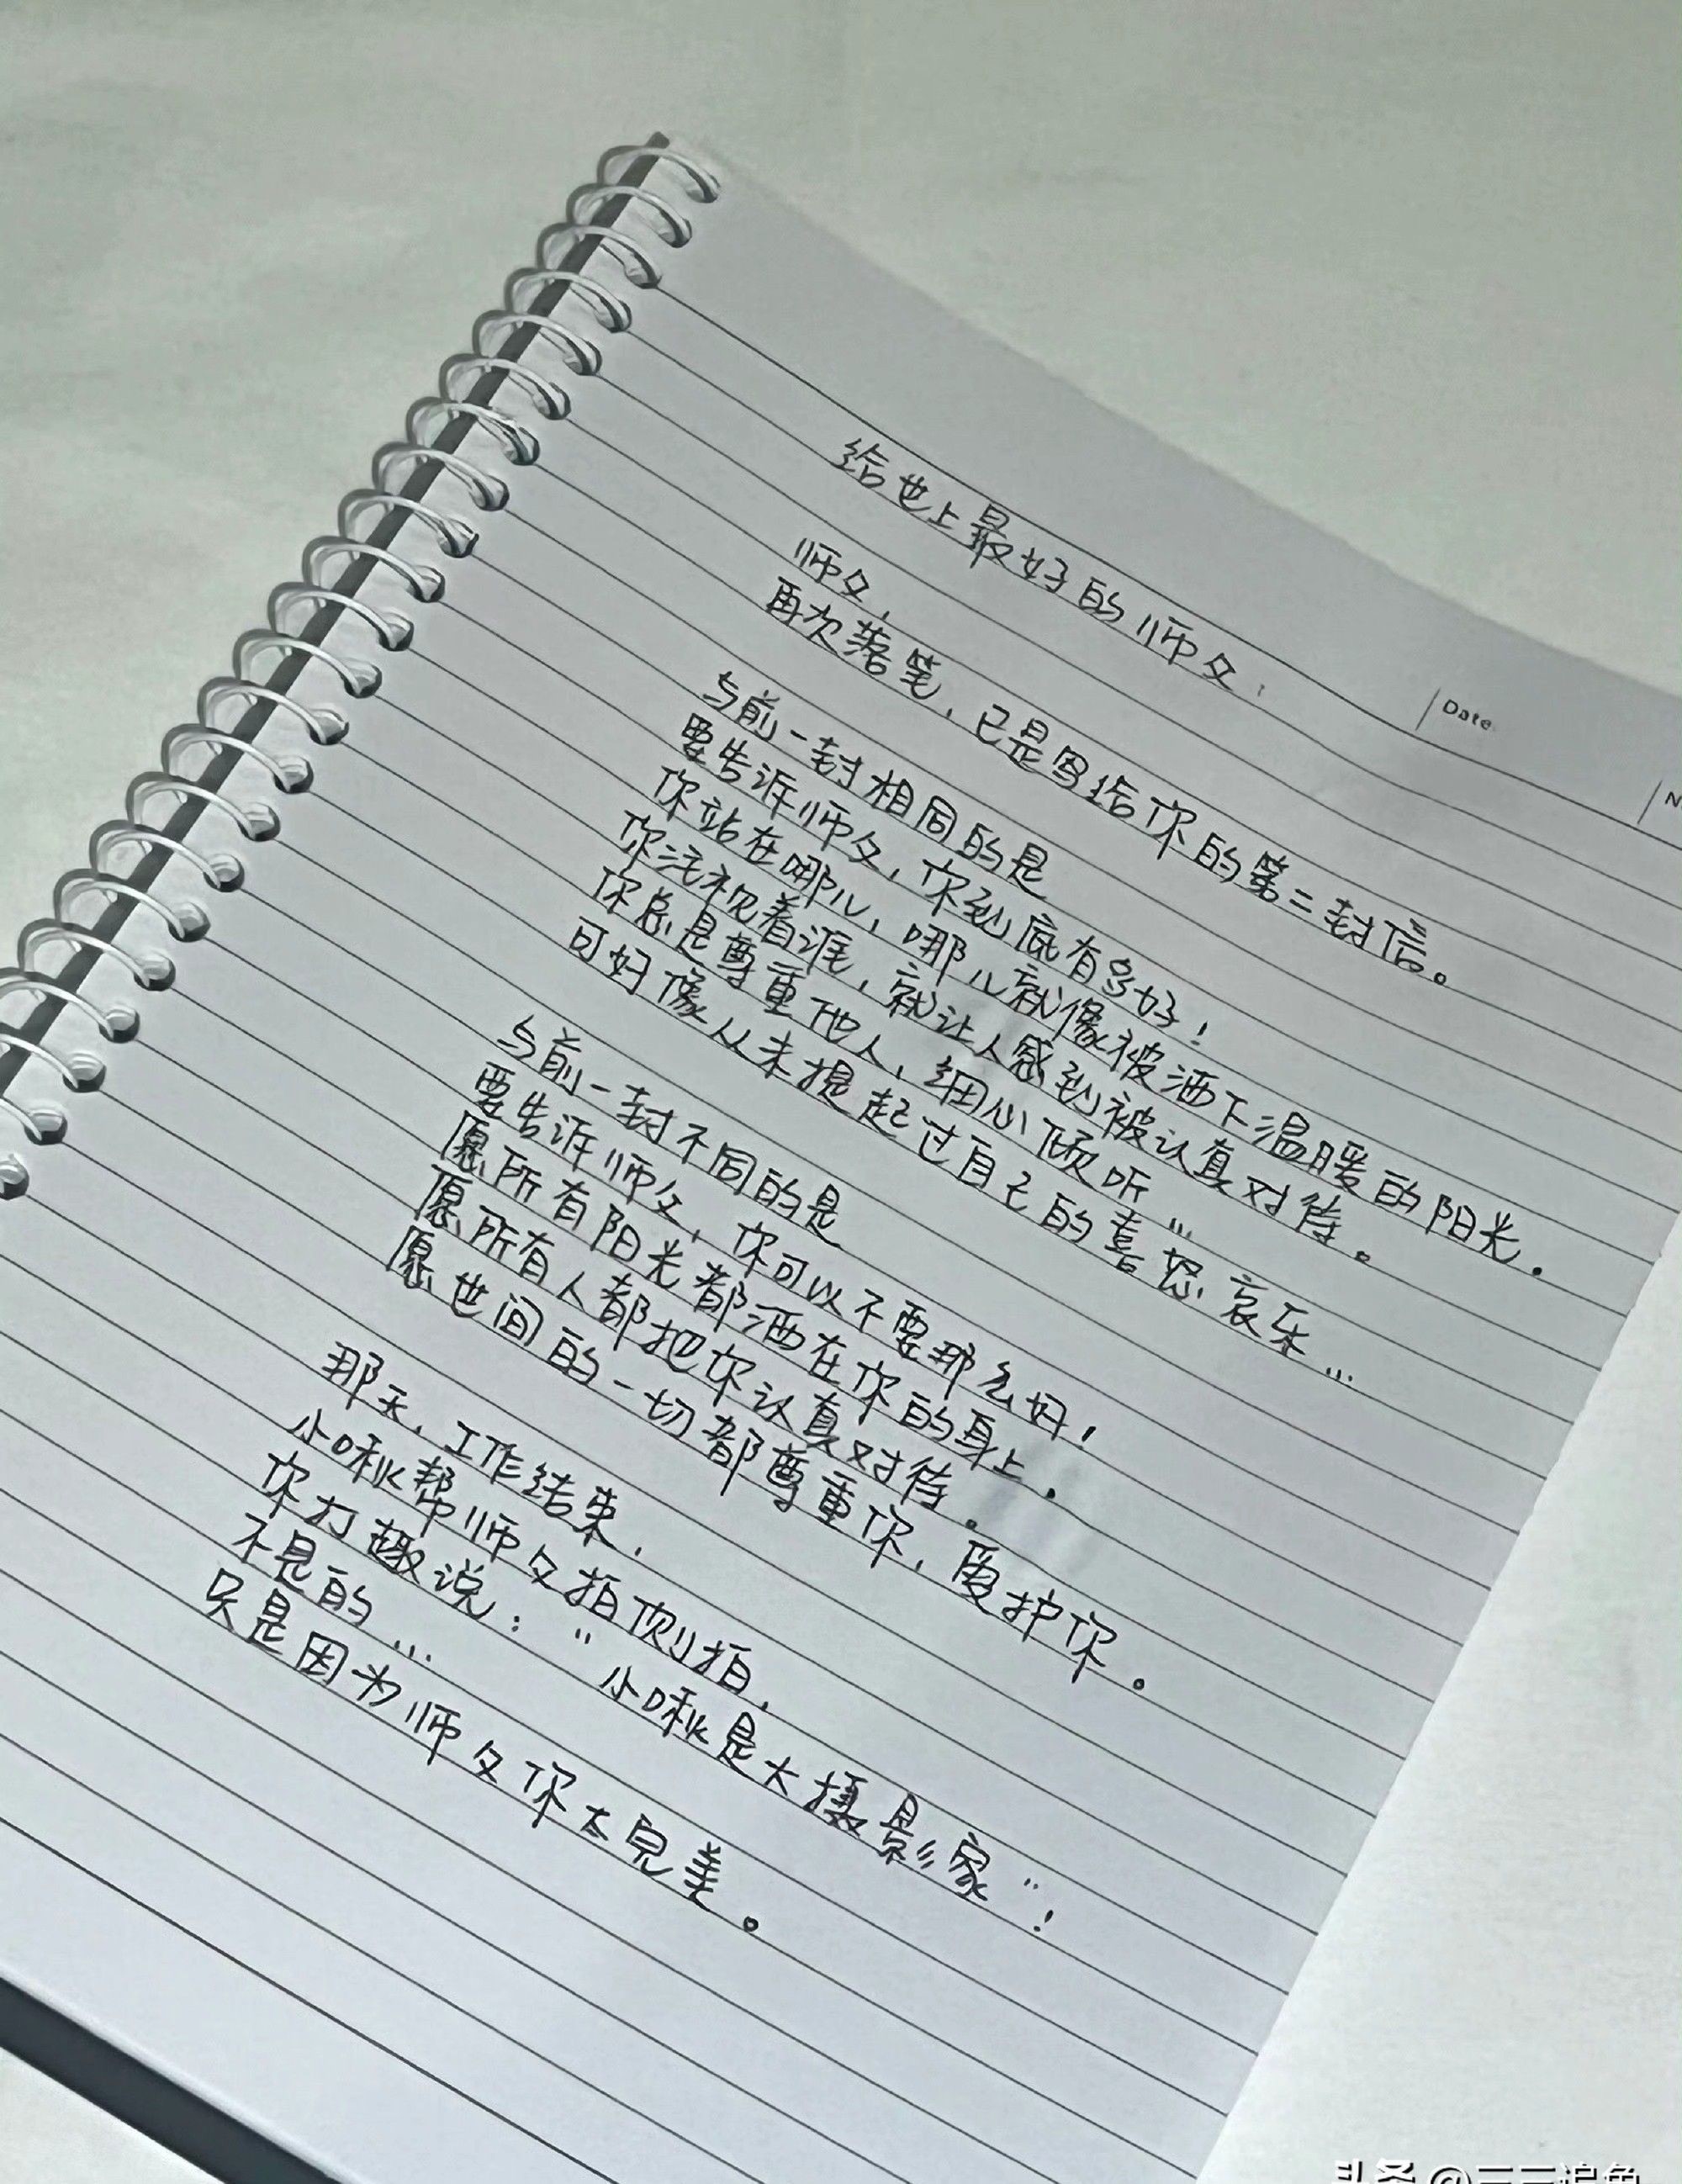 Date.
给世上最好的师父：
师父，
再次落笔，已是写给你的第二封信。
与前一封相同的是
要告诉师父，你到底有多好！
你站在哪儿，哪儿就像被洒下温暖的阳光。
你注视着谁，就让人感到被认真对待。
你总是尊重他人，细心倾听…
可好像从未提起过自己的喜怒哀乐…
与前一封不同的是
要告诉师父，你可以不要那么好！
愿所有阳光都洒在你的身上，
愿所有人都把你认真对待。
愿世间的一切都尊重你，爱护你。
那天，工作结束，
小啾帮师父拍侧拍，
你打趣说：“小啾是大摄影家”！
不是的…
只是因为师父你太完美。
头条 @三三追鱼